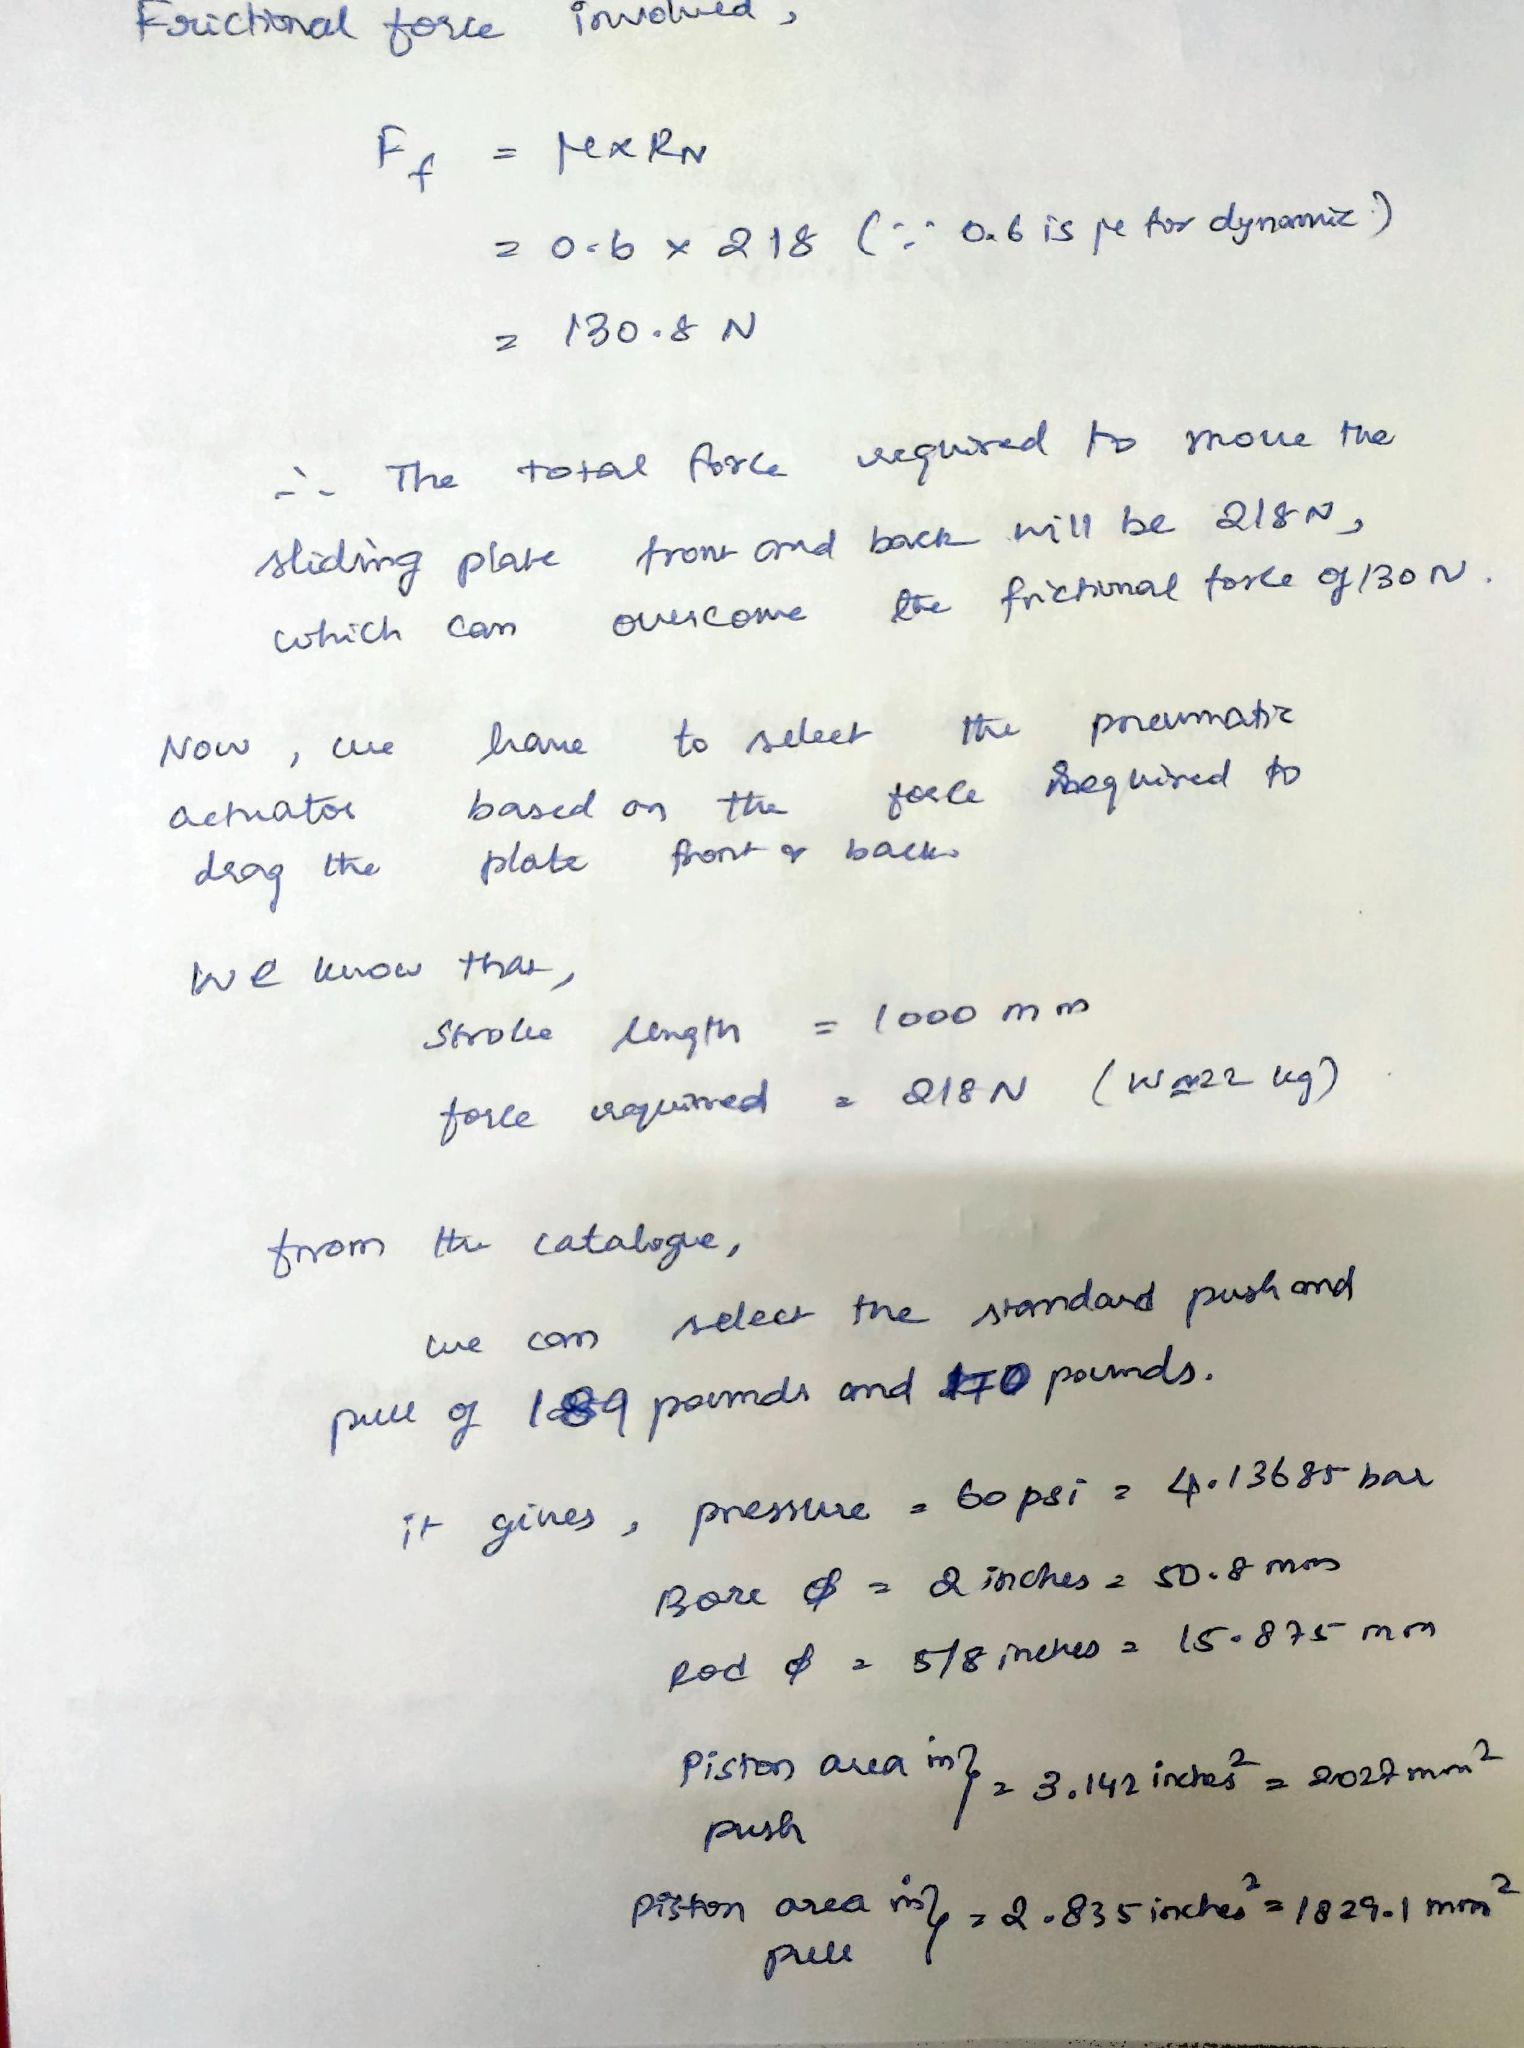 Frictional force involved,
Ff = μ x RN
= 0.6 x 218 (∵ 0.6 is μ for dynamic)
= 130.8 N
∴ The total force required to move the
sliding plate front and back will be 218 N,
which can overcome the frictional force of 130 N.
Now, we have to select the pneumatic
actuator based on the force required to
drag the plate front & back.
We know that,
Stroke length = 1000 mm
force required = 218 N (W≈22 kg)
from the catalogue,
we can select the standard push and
pull of 189 pounds and 170 pounds.
it gives, pressure = 60 psi = 4.13685 bar
Bore ϕ = 2 inches = 50.8 mm
Rod ϕ = 5/8 inches = 15.875 mm
Piston area in } = 3.142 inches² = 2027 mm²
push
piston area in } = 2.835 inches² = 1829.1 mm²
pull